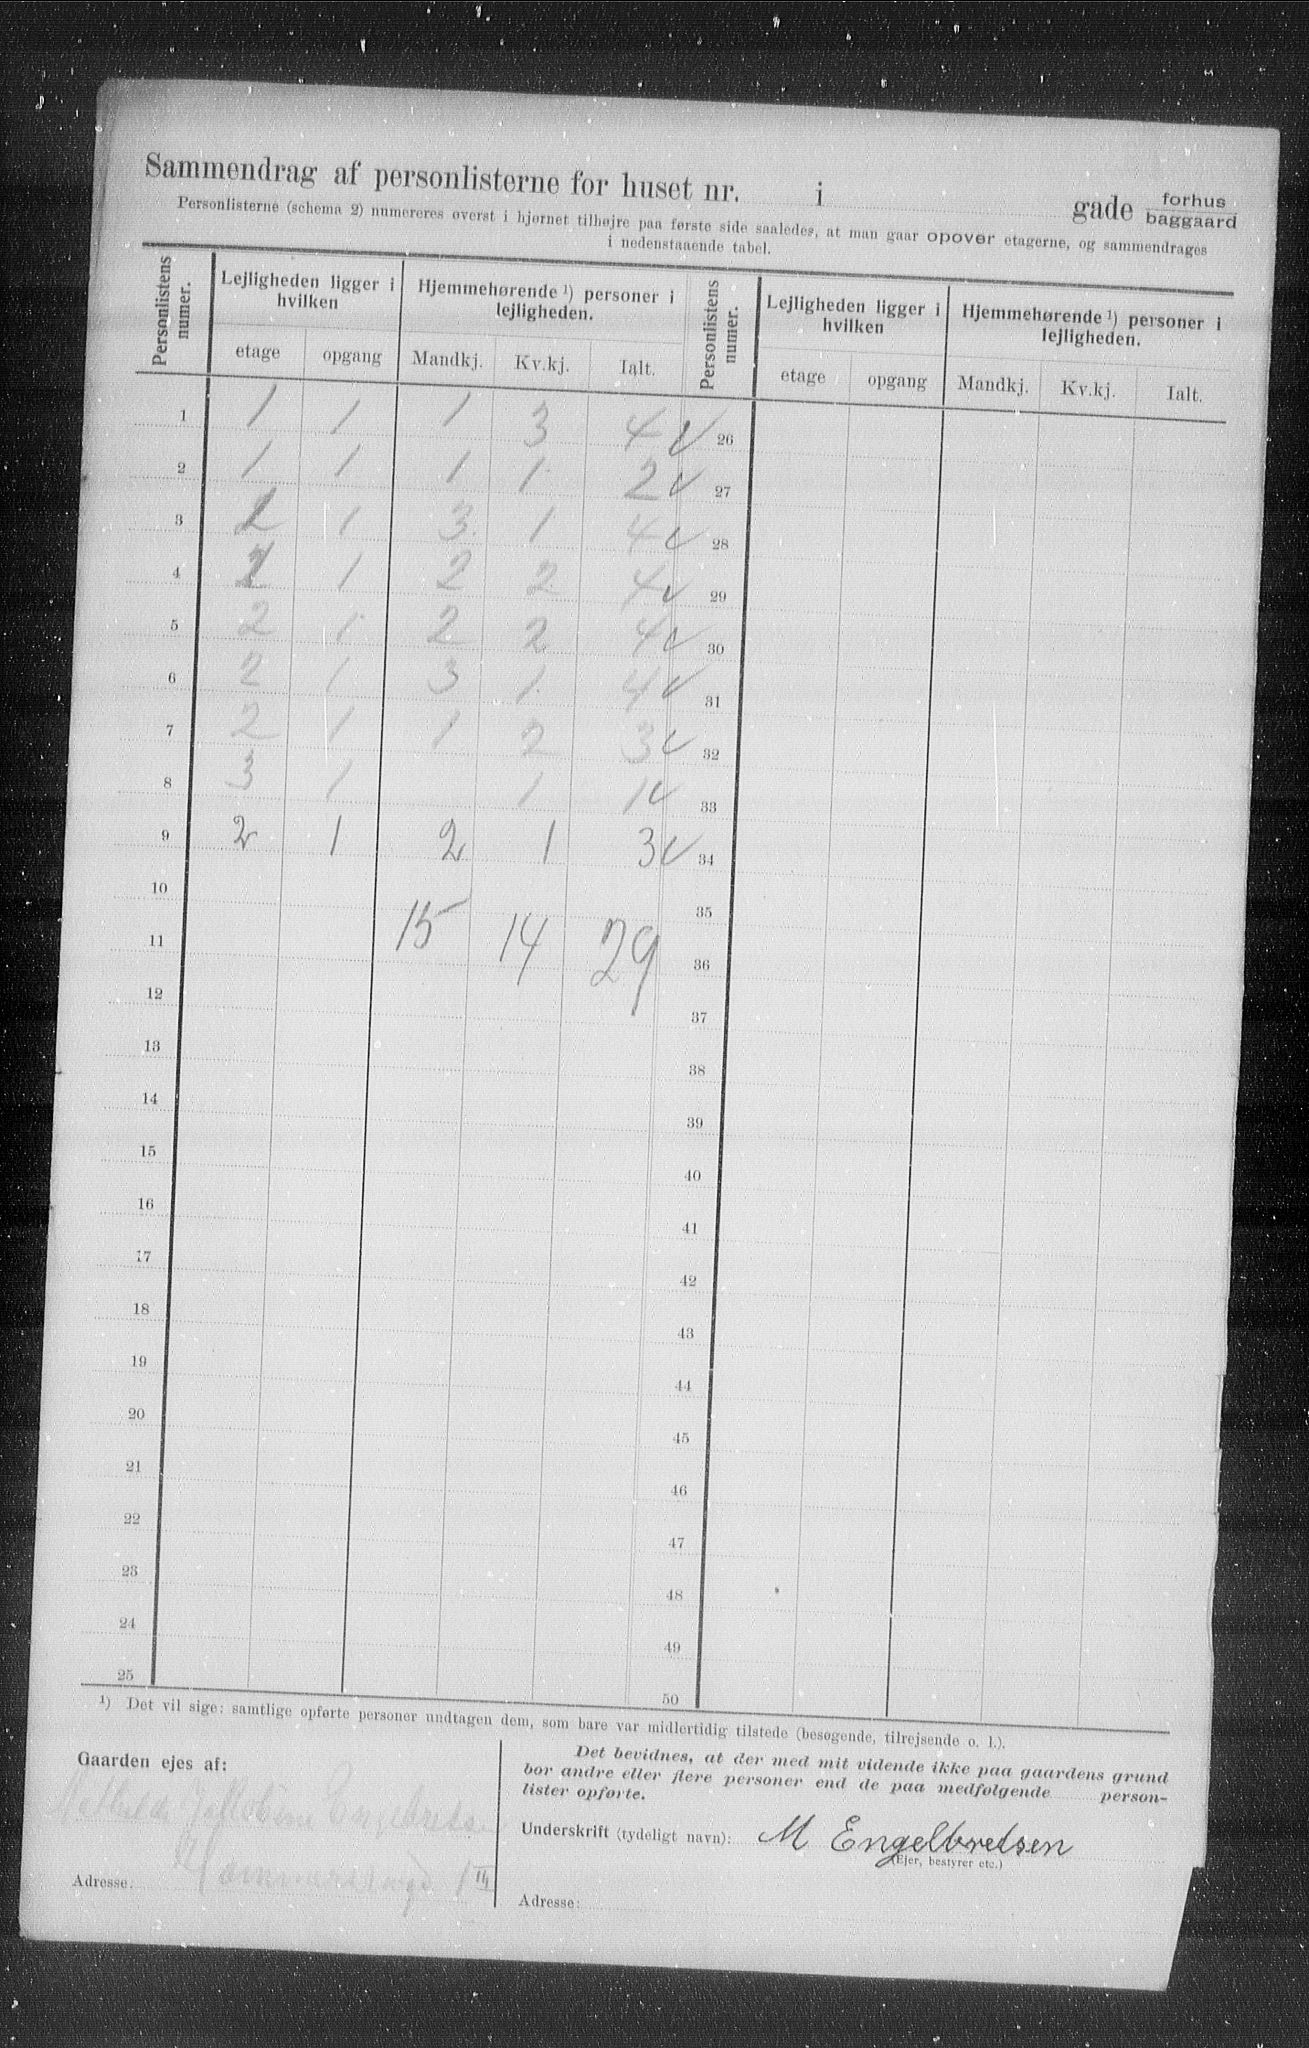 Sammendrag af personlisterne for huset nr. i gade forhus baggaard
Personlisterne (schema 2) numereres øverst i hjørnet tilhøjre paa første side saaledes, at man gaar opover etagerne, og sammendrages
i nedenstaaende tabel.
Personlistens numer. Lejligheden ligger i hvilken Hjemmehørende ¹) personer i lejligheden. Personlistens numer. Lejligheden ligger i hvilken Hjemmehørende ¹) personer i lejligheden.
etage opgang Mandkj. Kv.kj. Ialt. etage opgang Mandkj. Kv.kj. Ialt.
1 1 1 1 3 4 ✓ 26
2 1 1 1 1 2 ✓ 27
3 2 1 3 1 4 ✓ 28
4 2 1 2 2 4 ✓ 29
5 2 1 2 2 4 ✓ 30
6 2 1 3 1 4 ✓ 31
7 2 1 1 2 3 ✓ 32
8 3 1 1 1 ✓ 33
9 2 1 2 1 3 ✓ 34
10 35
11 15 14 29 36
12 37
13 38
14 39
15 40
16 41
17 42
18 43
19 44
20 45
21 46
22 47
23 48
24 49
25 50
¹) Det vil sige: samtlige opførte personer undtagen dem, som bare var midlertidig tilstede (besøgende, tilrejsende o. l.).
Gaarden ejes af:
Mathilde Jakobine Engebretsen
1 III
Adresse:
Det bevidnes, at der med mit vidende ikke paa gaardens grund
bor andre eller flere personer end de paa medfølgende person-
lister opførte.
Underskrift (tydeligt navn): M Engelbretsen
(Ejer, bestyrer etc.)
Adresse: